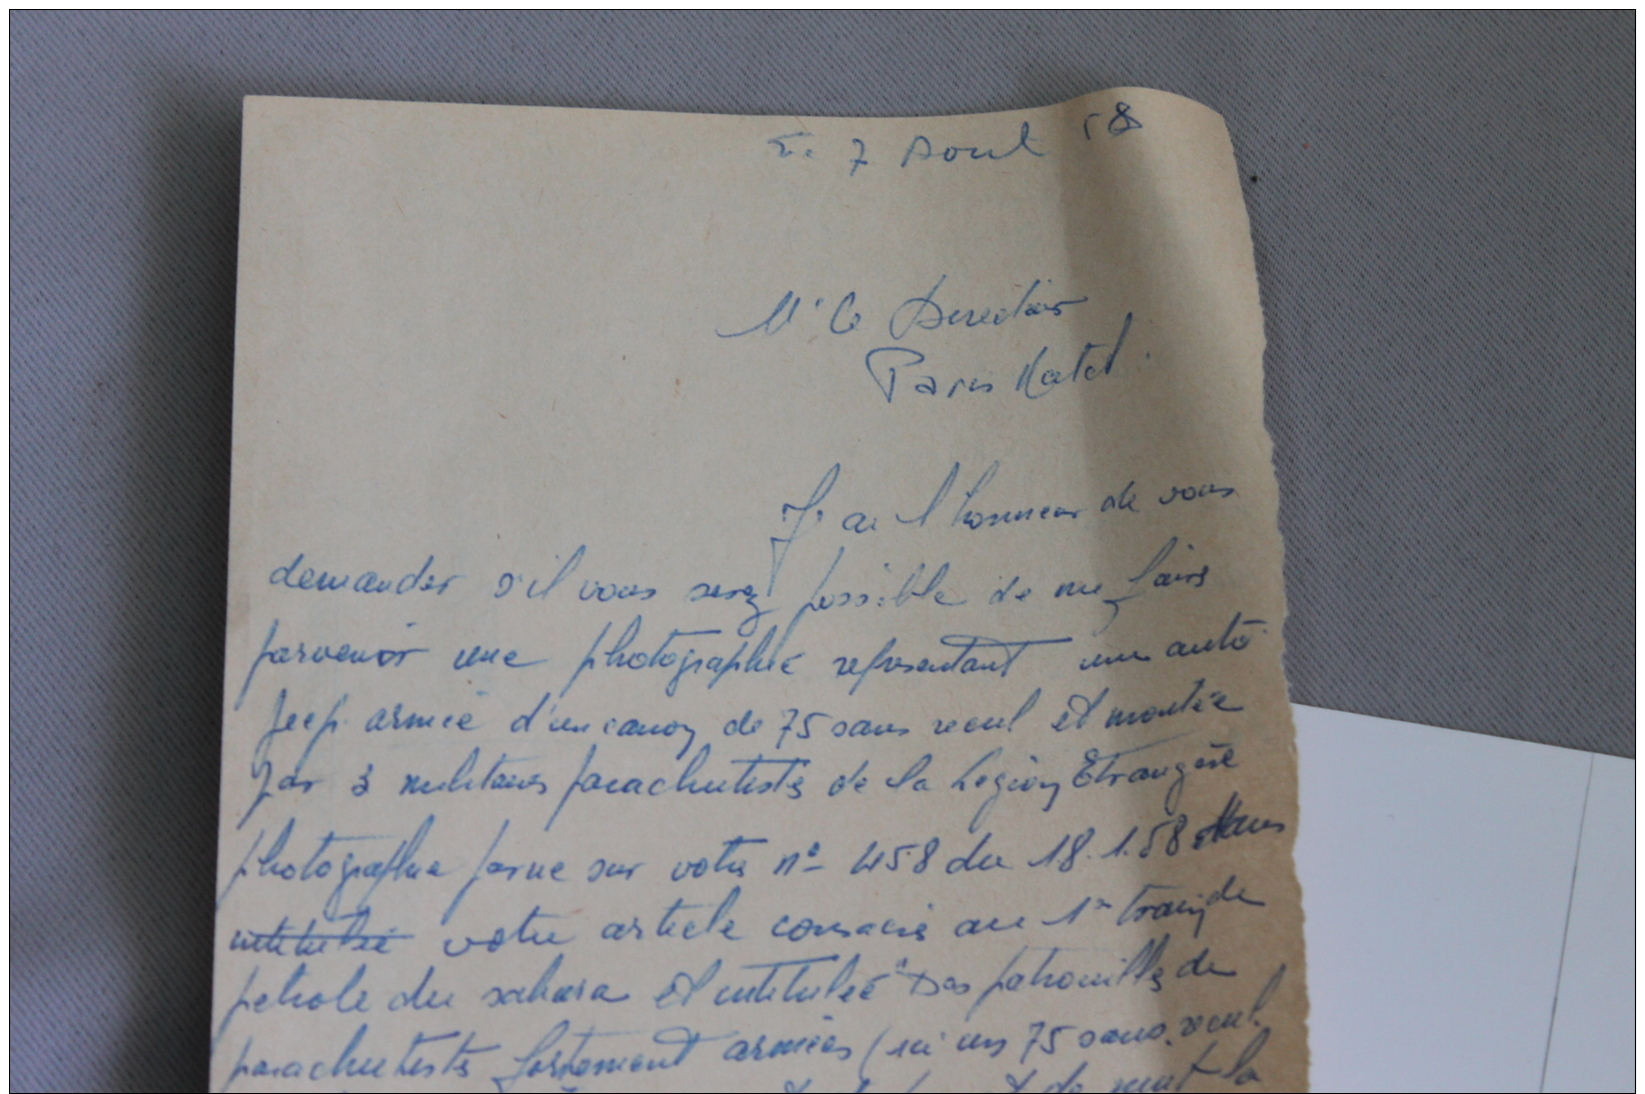 7 Aout 58
Mr le Directeur
Paris Match.
J'ai l'honneur de vous
demander s'il vous possible de me faire
parvenir une photographie representant une auto
Jeep armée d'un canon de 75 sans recul et montée
par 3 militaires parachutistes de la Légion Etrangère
photographie parue sur votre n° 458 du 18.1.58 dans
intitulée votre article consacré au 1er train de
petrole du sahara et intitulée "Des patrouilles de
parachutistes fortement armées (ici un 75 sans recul
de nuit la